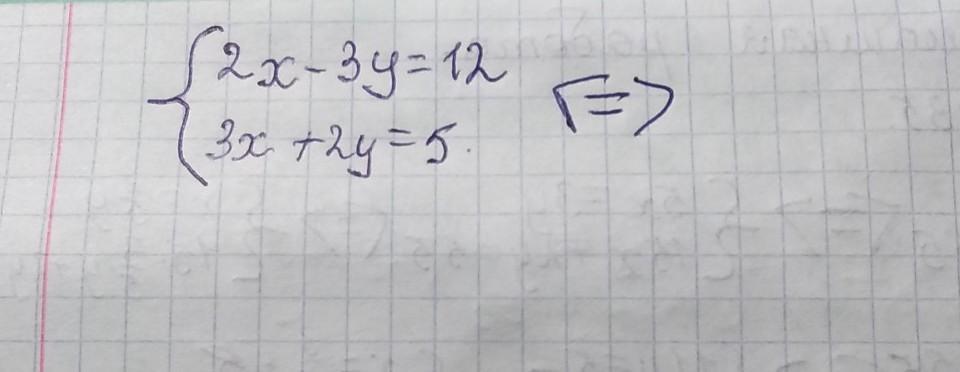 2x - 3y = 12 <=>
3x + 2y = 5.